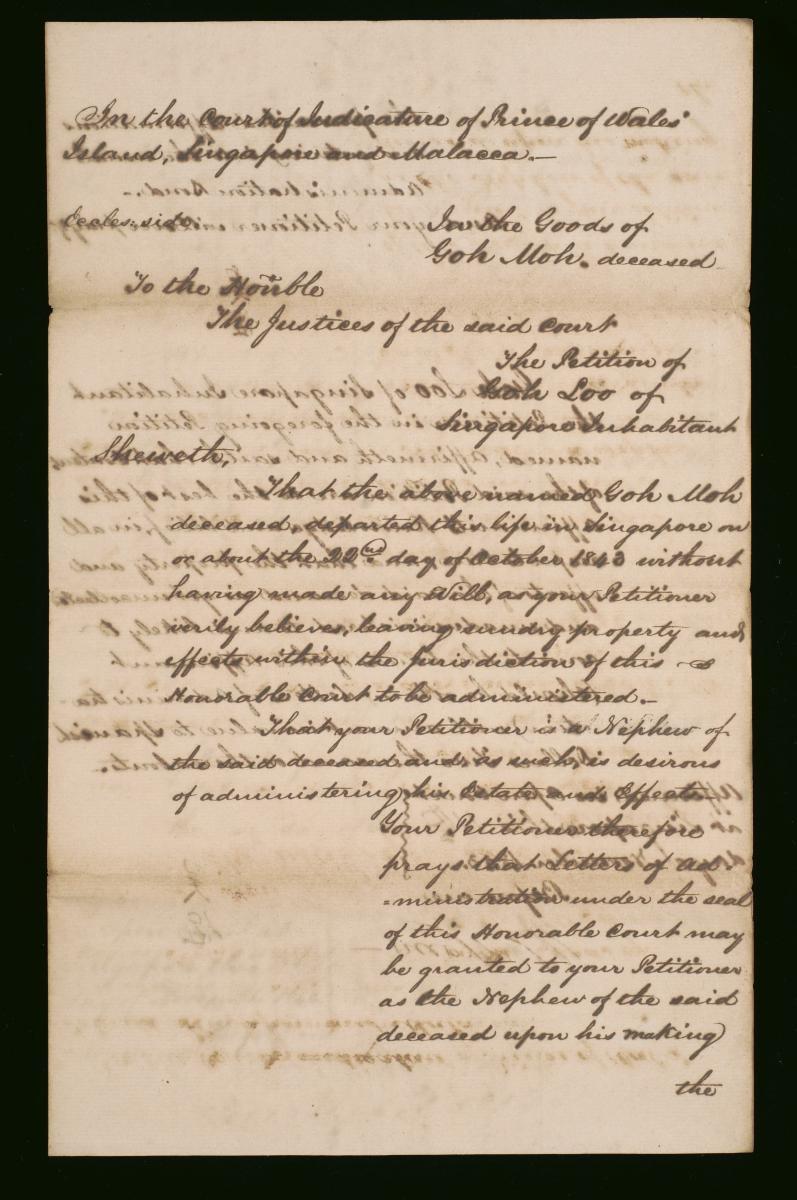 In the Court of Judicature of Prince of Wales'
Island, Singapore and Malacca.—
Eccles: side
In the Goods of
Goh Moh. deceased
To the Honble
The Justices of the said Court
The Petition of
Goh Loo of
Singapore Inhabitant
Sheweth,
That the above named Goh Moh
deceased, departed this life in Singapore on
or about the 22nd day of October 1843 without
having made any Will, as your Petitioner
verily believes, leaving sundry property and
effects within the Jurisdiction of this
Honorable Court to be administered.—
That your Petitioner is a Nephew of
the said deceased and, as such, is desirous
of administering his Estate and Effects—
Your Petitioner therefore
prays that Letters of ad-
=ministration under the seal
of this Honorable Court may
be granted to your Petitioner
as the Nephew of the said
deceased upon his making
the